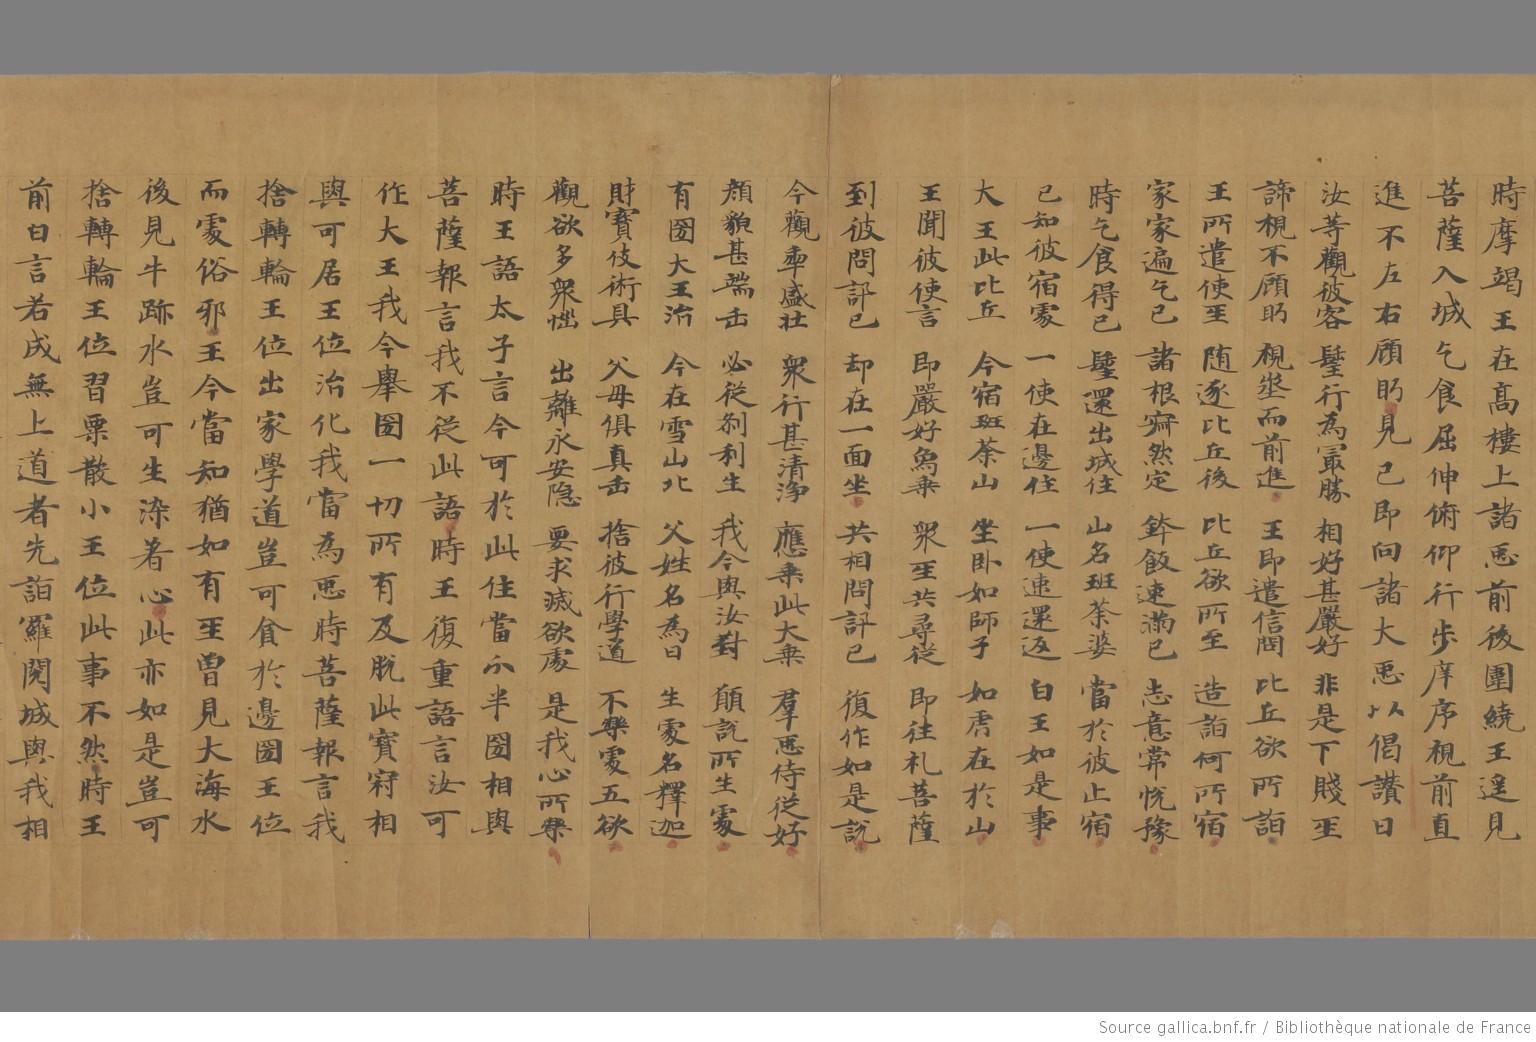 時摩竭王在高樓上諸𢘑前後圍繞王遥見
菩薩入城乞食屈伸俯仰行步庠序視前直
進不左右顧眄見已即向諸大𢘑以偈讚曰
汝等觀彼客 𨲢行為冣勝 相好甚嚴好 非是下賤𤯔
諦視不顧眄 視埊而前進 王即遣信問 比丘欲所詣
王所遣使𤯔 随逐比丘後 比丘欲所至 造詣何所宿
家家遍乞已 諸根寂然定 鉢飯速滿已 志意常恱豫
時乞食得已 𨲢還出城住 山名班荼婆 當於彼止宿
已知彼宿處 一使在邊住 一使速還返 白王如是事
大王此比丘 今宿班荼山 坐卧如師子 如虎在於山
王聞彼使言 即嚴好象乘 衆𤯔共尋從 即往礼菩薩
到彼問訊已 却在一面坐 共相問訊已 復作如是說
今觀秊盛壯 衆行甚清淨 應乘此大乘 羣𢘑侍從好
顔貌甚端𠙺 必從剎利生 我今與汝對 願說所生處
有圀大王治 今在雪山北 父姓名為曰 生處名釋迦
財寶伎術具 父母俱真𠙺 捨彼行學道 不樂處五欲
觀欲多衆惱 出離永安隐 要求滅欲處 是我心所樂
時王語太子言今可於此住當分半圀相與
菩薩報言我不從此語時王復重語言汝可
作大王我今舉圀一切所有及脫此寶冠相
與可居王位治化我當為𢘑時菩薩報言我
捨轉輪王位出家學道豈可貪於邊圀王位
而處俗邪王今當知猶如有𤯔曾見大海水
後見牛跡水豈可生染著心此亦如是豈可
捨轉輪王位習粟散小王位此事不然時王
前白言若成無上道者先詣羅閱城與我相
Source gallica.bnf.fr / Bibliothèque nationale de France